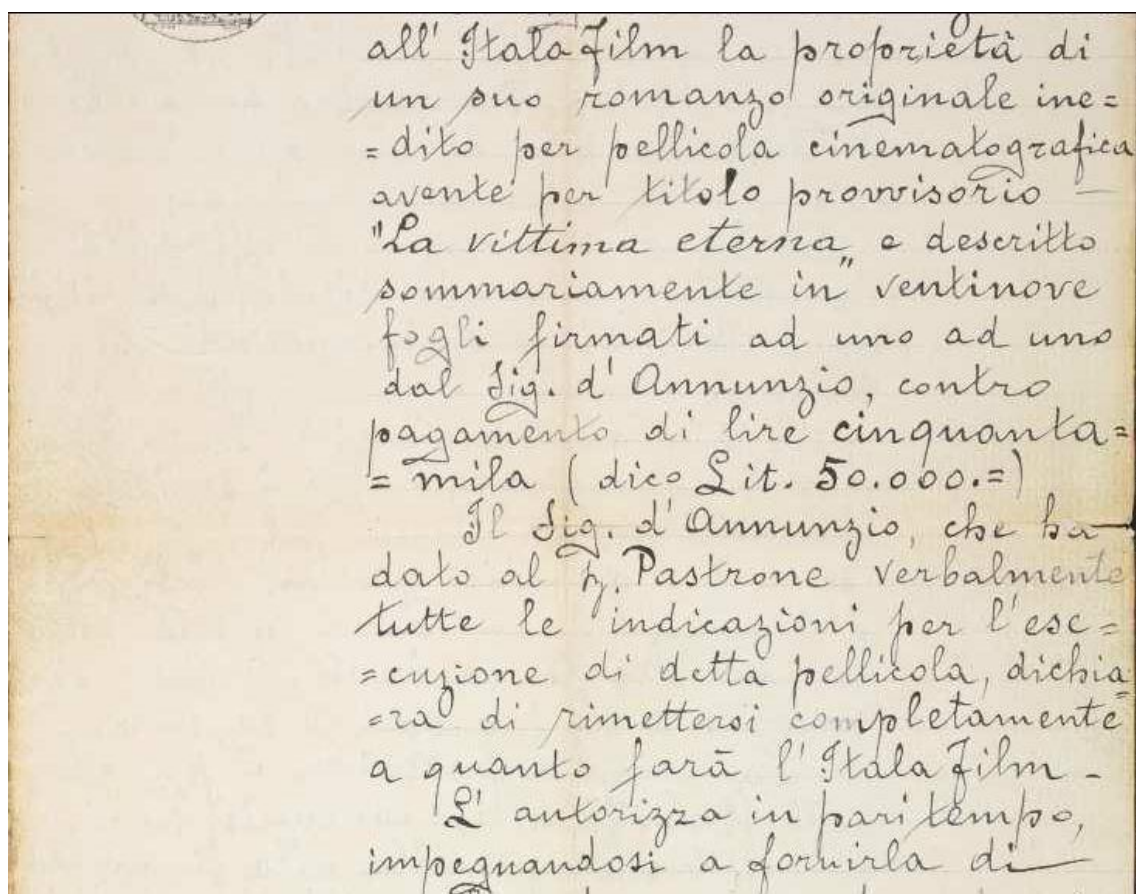 all' Itala Film la proprietà di
un suo romanzo originale ine=
=dito per pellicola cinematografica
avente per titolo provvisorio —
"La vittima eterna" e descritto
sommariamente in ventinove
fogli firmati ad uno ad uno
dal Sig. d'Annunzio, contro
pagamento di lire cinquanta=
=mila (dico Lit. 50.000.=)
Il Sig. d'Annunzio, che ha—
dato al Pastrone verbalmente
tutte le indicazioni per l'ese=
=cuzione di detta pellicola, dichia
=ra di rimettersi completamente
a quanto farà l'Itala Film -
L'autorizza in pari tempo,
impegnandosi a fornirla di—